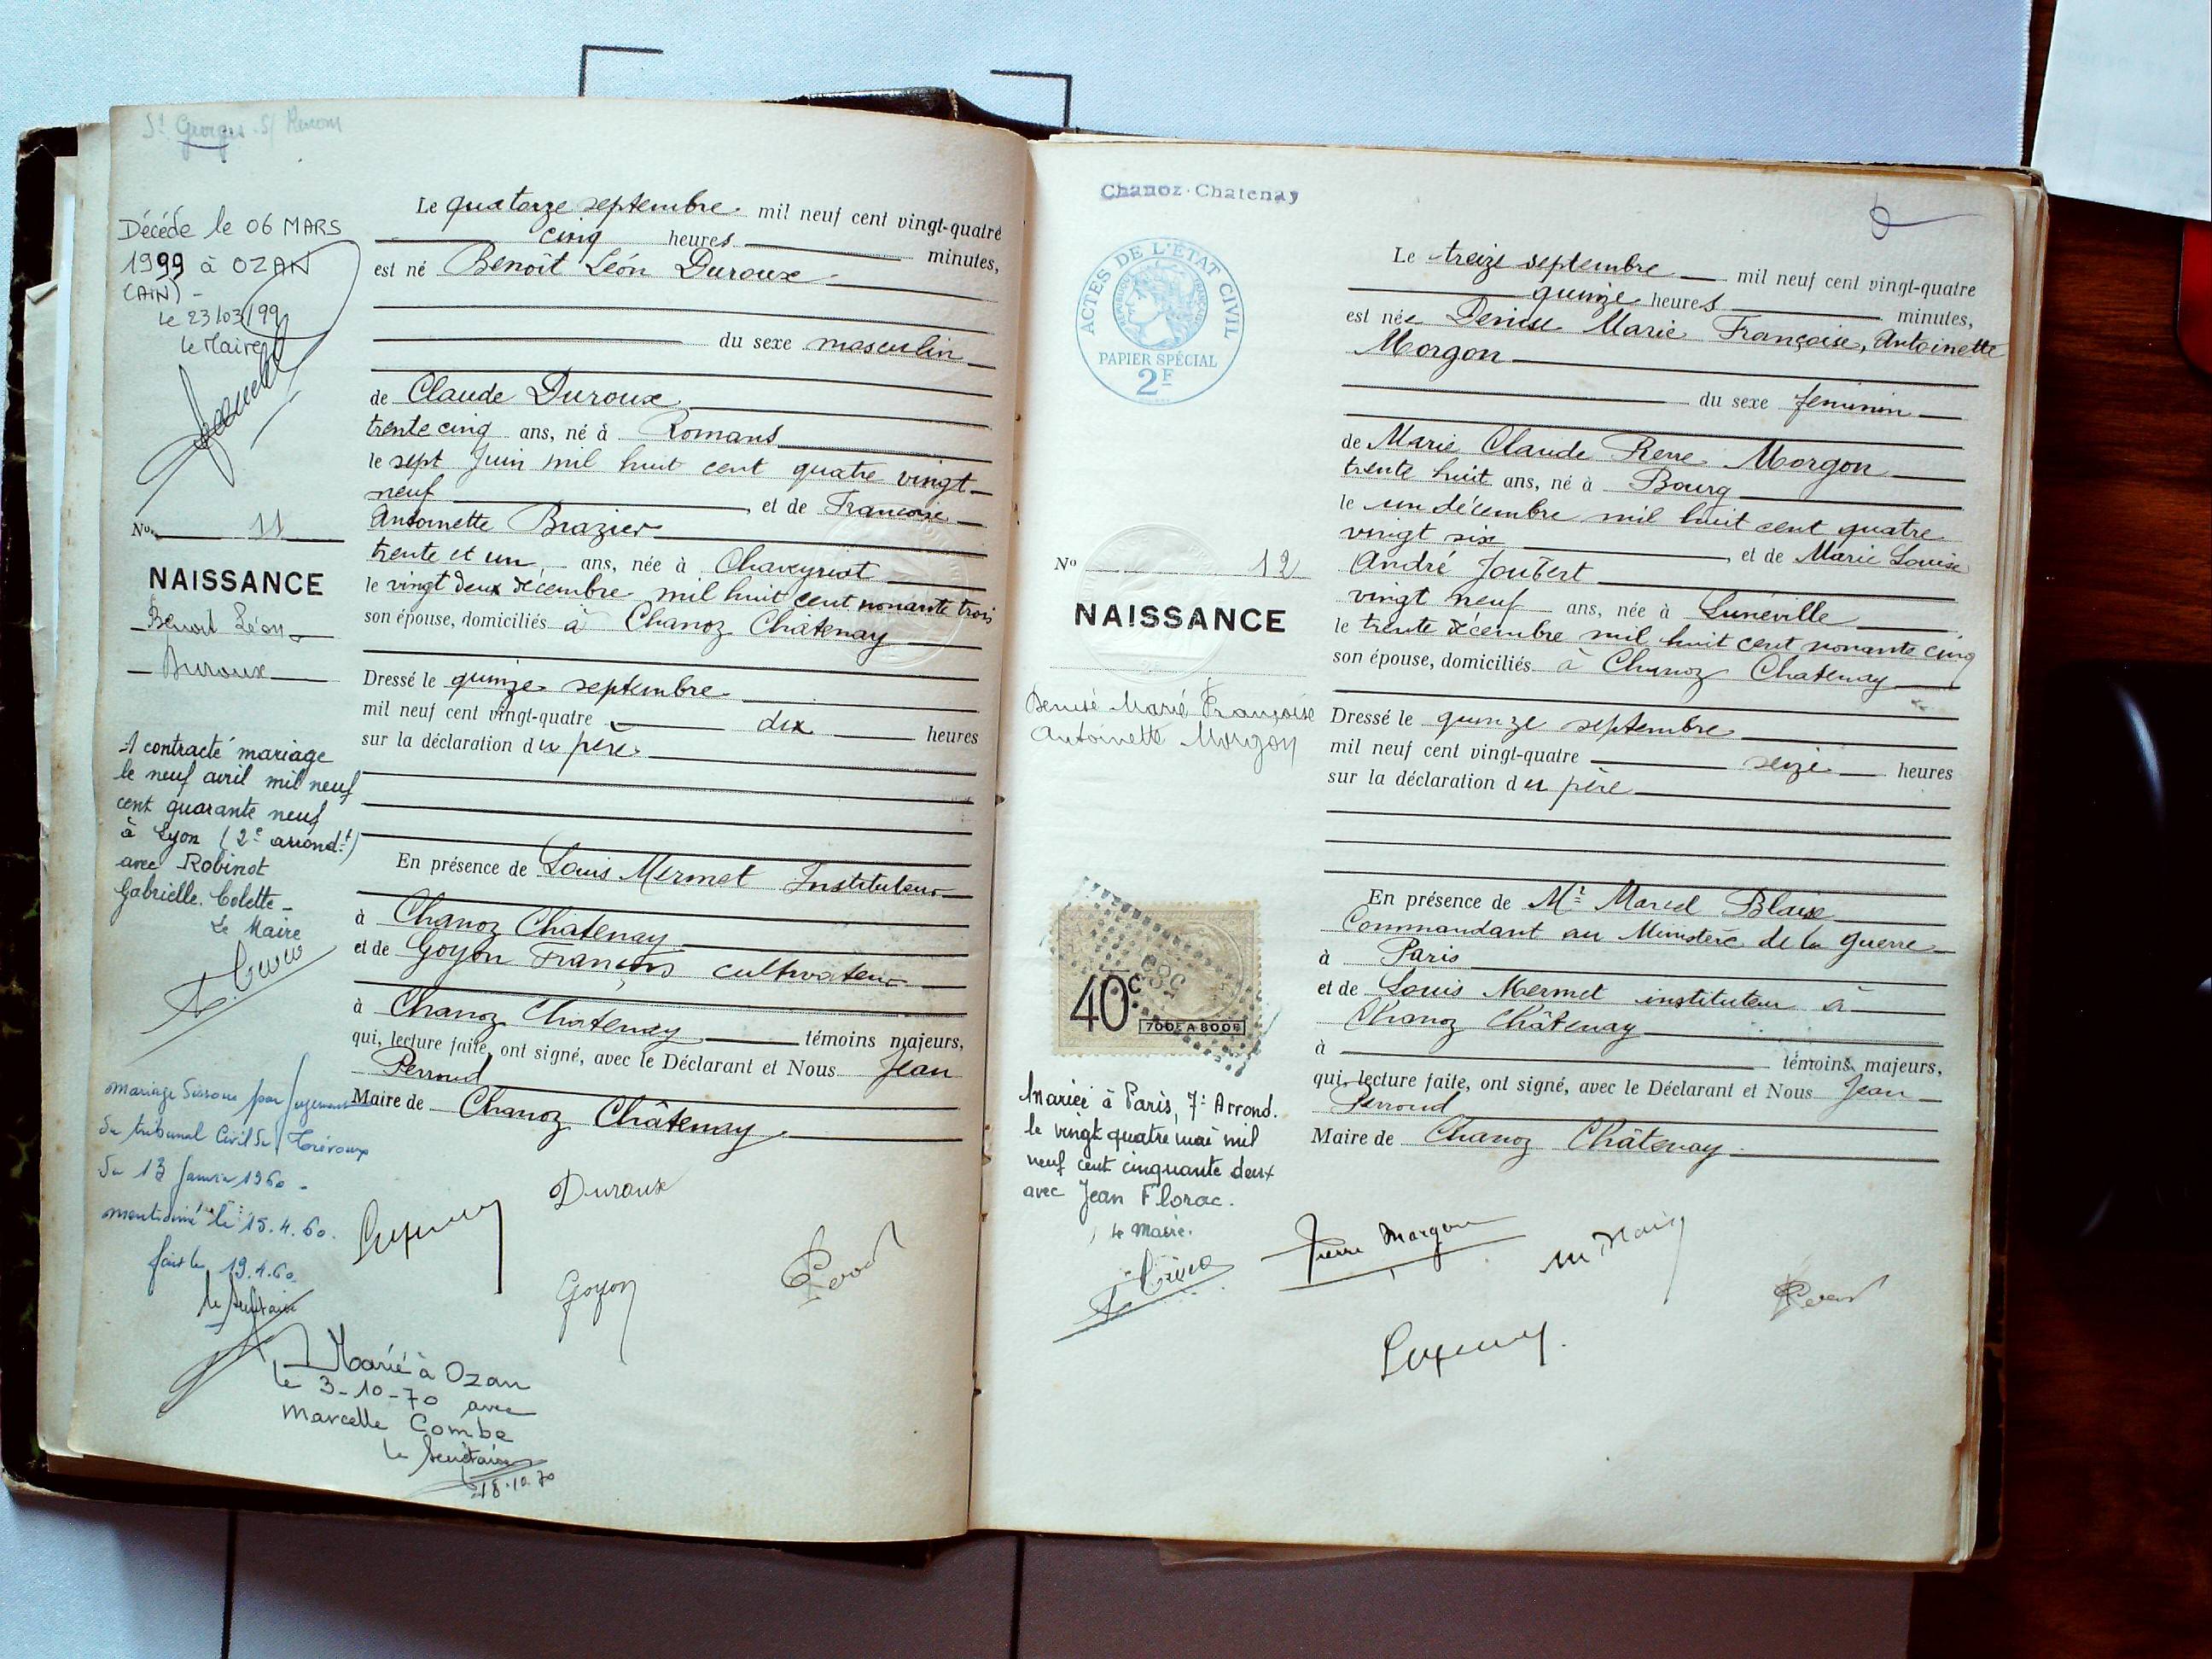 St Georges s/ Renom
Décédé le 06 MARS
1999 à OZAN
(AIN) -
Le 23/03/99
le Maire
No. 11
NAISSANCE
Benoit Léon
Duroux
A contracté mariage
le neuf avril mil neuf
cent quarante neuf
à Lyon (2e arrond.t)
avec Robinot
Gabrielle. Colette -
Le Maire
mariage dissous par jugement
du tribunal Civil de Trévoux
du 13 Janvier 1960 -
mentionné le 15.4.60.
fait le 19.4.60.
le secrétaire
Marié à Ozan
le 3-10-70 avec
Marcelle Combe
le Secrétaire
18.10.70
Le quatorze septembre mil neuf cent vingt-quatre
cinq heures minutes,
est né Benoît Léon Duroux
du sexe masculin
de Claude Duroux
trente cinq ans, né à Romans
le sept Juin mil huit cent quatre vingt-
neuf et de Francoise
Antoinette Brazier
trente et un ans, née à Chaveyriat
le vingt deux décembre mil huit cent nonante trois
son épouse, domiciliés à Chanoz Chatenay
Dressé le quinze septembre
mil neuf cent vingt-quatre dix heures
sur la déclaration du père.
En présence de Louis Mermet Instituteur
à Chanoz Chatenay
et de Goyon François cultivateur
à Chanoz Chatenay témoins majeurs,
qui, lecture faite, ont signé, avec le Déclarant et Nous Jean
Perroud
Maire de Chanoz Châtenay
Duroux
Goyon
Chanoz-Chatenay
6
ACTES DE L'ÉTAT CIVIL
RÉPUBLIQUE FRANÇAISE
PAPIER SPÉCIAL
2F
No 12
NAISSANCE
Denise Marie Françoise
Antoinette Morgon
588
40c
700F A 800F
Mariée à Paris, 7e Arrond.
le vingt quatre mai mil
neuf cent cinquante deux
avec Jean Florac.
Le Maire.
Le treize septembre mil neuf cent vingt-quatre
quinze heures minutes,
est née Denise Marie Françoise, Antoinette
Morgon
du sexe feminin
de Marie Claude Rene Morgon
trente huit ans, né à Bourg
le un décembre mil huit cent quatre
vingt six et de Marie Louise
André Joubert
vingt neuf ans, née à Lunéville
le trente décembre mil huit cent nonante cinq
son épouse, domiciliés à Chanoz Chatenay
Dressé le quinze septembre
mil neuf cent vingt-quatre seize heures
sur la déclaration du père
En présence de Mr Marcel Blaise
Commandant au Ministère de la guerre
à Paris
et de Louis Mermet instituteur à
Chanoz Châtenay
à témoins majeurs,
qui, lecture faite, ont signé, avec le Déclarant et Nous Jean
Perroud
Maire de Chanoz Châtenay
Pierre Morgon